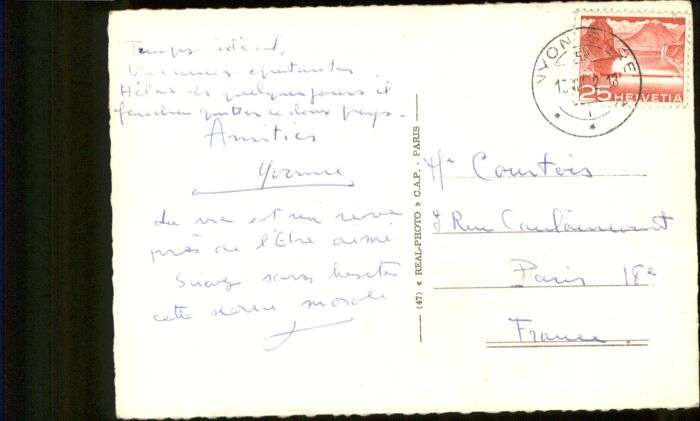 Temps idéal,
Vacances épatantes
Hélas dès quelques jours il
faudra quitter ce doux pays.
Amitiés
Yvonne
La vie est un rêve
près de l'Etre aimé
Suivez sans hésiter
cette morale
(47) « REAL-PHOTO » C.A.P. - PARIS
25 HELVETIA
Mr Courtois
8 Rue Caulaincourt
Paris 18e
France.